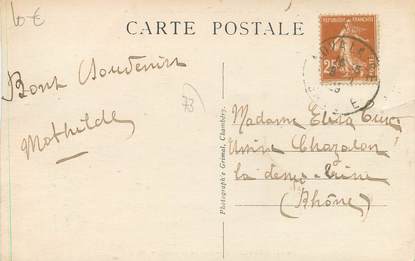 10 €
CARTE POSTALE
REPUBLIQUE FRANCAISE
25
Bons Souvenirs
73
Mathilde
Photograph'e Grimal, Chambéry.
Madame Elisa
Usine Chazalon
la
(Rhône)